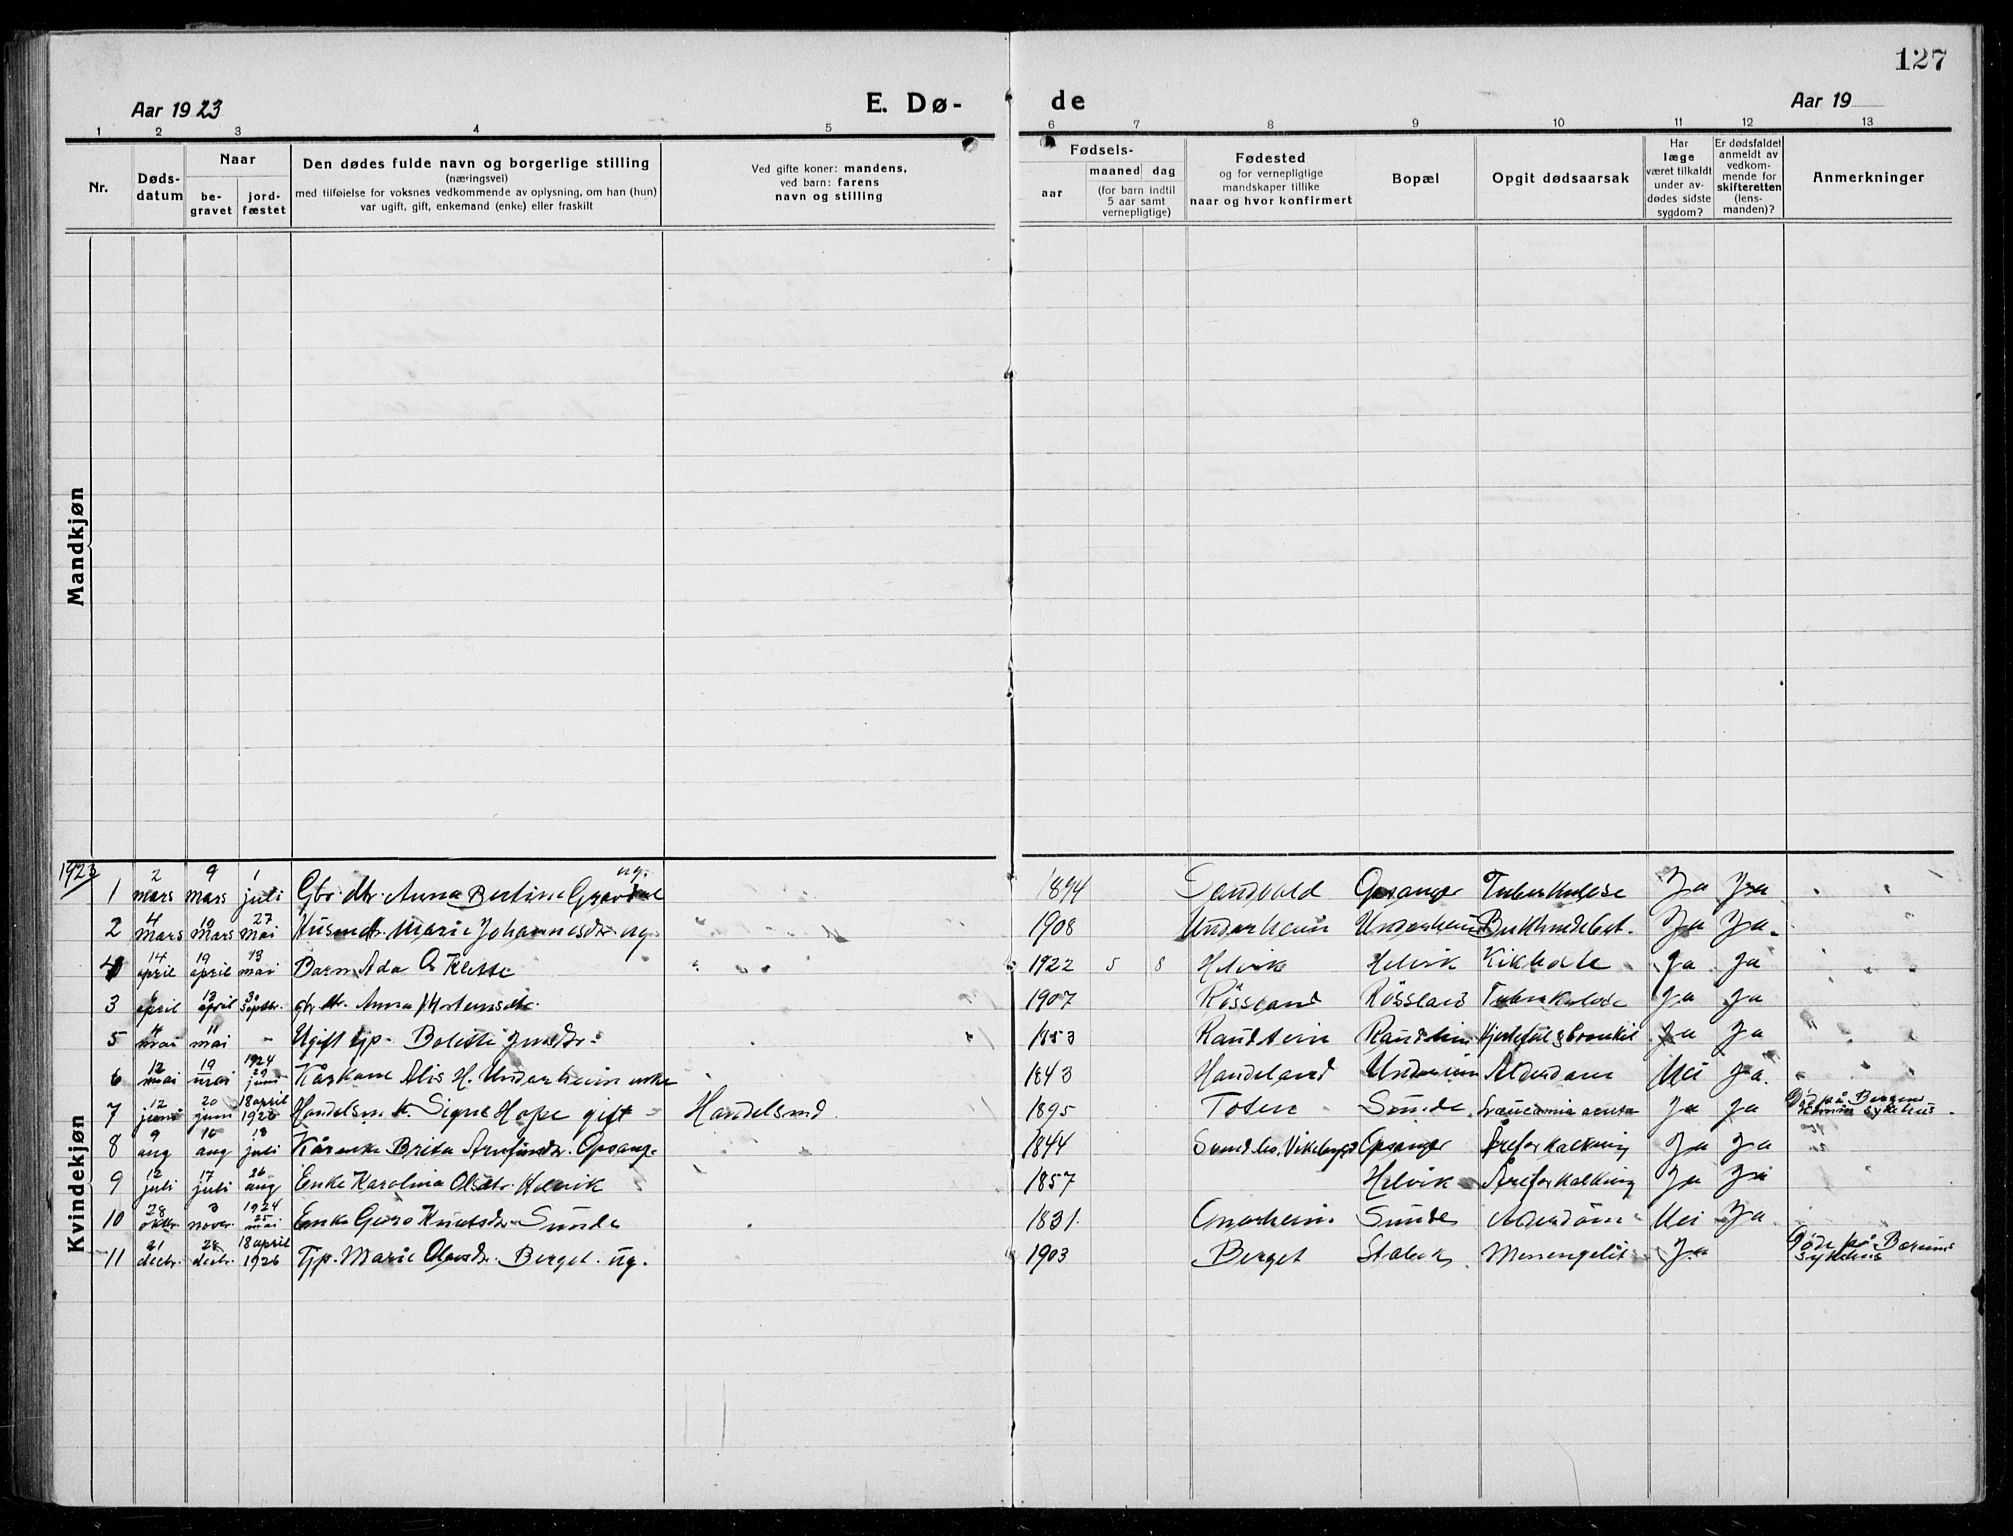 127
Aar 1923
E. Dø-
de
Aar 19
1 2 3 4 5 6 7 8 9 10 11 12 13
Nr.
Døds-
datum
Naar
be-
gravet
jord-
fæstet
Den dødes fulde navn og borgerlige stilling
(næringsvei)
med tilføielse for voksnes vedkommende av oplysning, om han (hun)
var ugift, gift, enkemand (enke) eller fraskilt
Ved gifte koner: mandens,
ved barn: farens
navn og stilling
Fødsels-
aar
maaned dag
(for barn indtil
5 aar samt
vernepligtige)
Fødested
og for vernepligtige
mandskaper tillike
naar og hvor konfirmert
Bopæl
Opgit dødsaarsak
Har
læge
været tilkaldt
under av-
dødes sidste
sygdom?
Er dødsfaldet
anmeldt av
vedkom-
mende for
skifteretten
(lens-
manden)?
Anmerkninger
Mandkjøn
Kvindekjøn
1923
1 2 mars 9 mars 1 juli Gbr. dtr. Anna Bertine ug. 1894 Opsanger Tuberkulose Ja Ja
2 4 mars 10 mars 27 mai Husm. dtr. Marie Johannesdtr. ug. 1908 Underheim Underheim Ja Ja.
4 14 april 19 april 13 mai Barn Ada O Klette 1922 5 8 Helvik Helvik Kikhoste Ja Ja
3 6 april 13 april 30 septbr. Anna Mortensdtr. 1907 Røssland Røssland Tuberkulose Ja Ja
5 4 mai 11 mai - Ugift tjp. Bolette 1853 Handstein Ja Ja
6 12 mai 19 mai 1924 29 juni Kårkone Alis H. Underheim enke 1843 Handeland Underheim Alderdom Nei Ja.
7 12 juni 20 juni 18 april 1926 Handelsm. k. Signe Hope gift Handelsmd. 1895 Toten Sunde Leucæmia acuta Ja Ja Død på Bergens sykehus.
8 9 aug 16 aug 18 juli Kårenke Brita Opsang. 1844 Opsanger Åreforkalkning Ja Ja
9 12 juli 17 juli 26 aug Enke Karolina Olsdtr. Helvik 1857 Helvik Åreforkalkning Ja Ja
10 28 oktbr. 3 novbr. 1924 25 mai Enke Guro Knutsdtr. Sunde 1831. Omarheim Sunde Alderdom Nei Ja.
11 21 decbr. 28 decbr. 18 april 1926 Tjp. Marie Olavsdtr. Berget. ug. 1903 Berget Stabek Menengelit Ja Død på Bærums sykehus